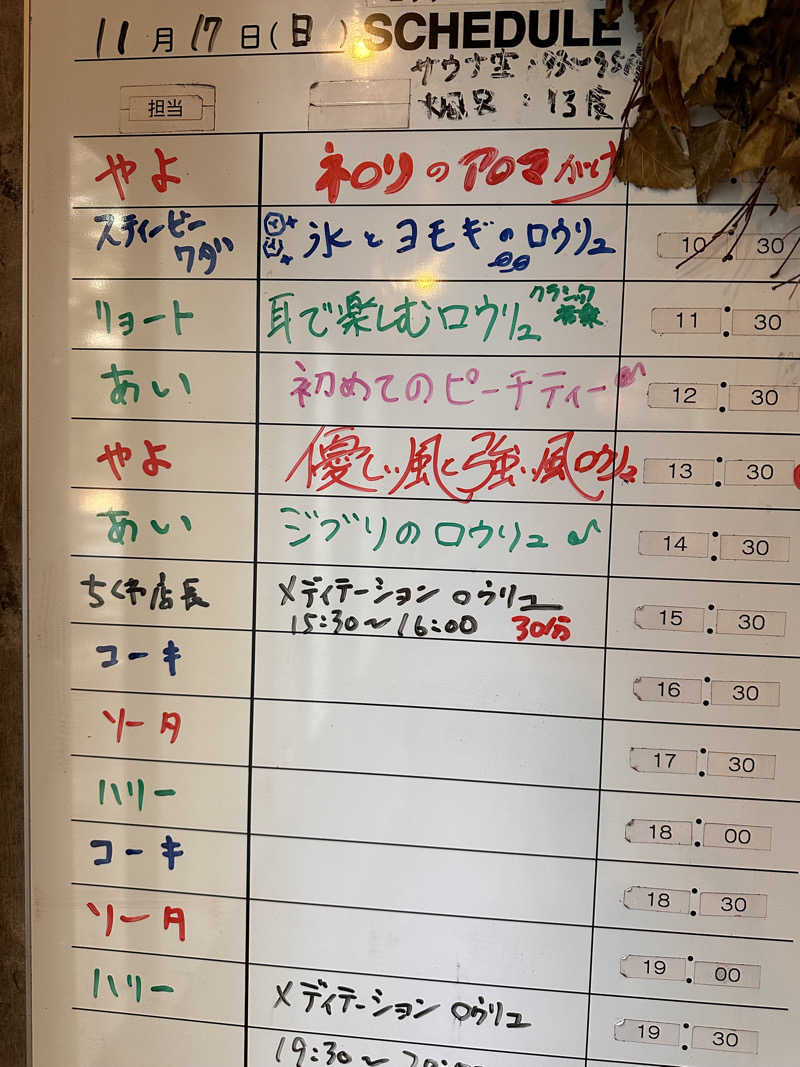 11月17日(日) SCHEDULE
サウナ室:93~95
水風呂:13度
担当
やよ ネロリのアロマがけ
スティービーワダ 氷とヨモギのロウリュ 10:30
リョート 耳で楽しむロウリュ クラシック音楽 11:30
あい 初めてのピーチティー♪ 12:30
やよ 優しい風と強い風ロウリュ 13:30
あい ジブリのロウリュ♪ 14:30
ちくわ店長 メディテーション ロウリュ 15:30
15:30~16:00 30分
コーキ 16:30
ソータ 17:30
ハリー 18:00
コーキ 18:30
ソータ 19:00
ハリー メディテーション ロウリュ 19:30
19:30~20:00